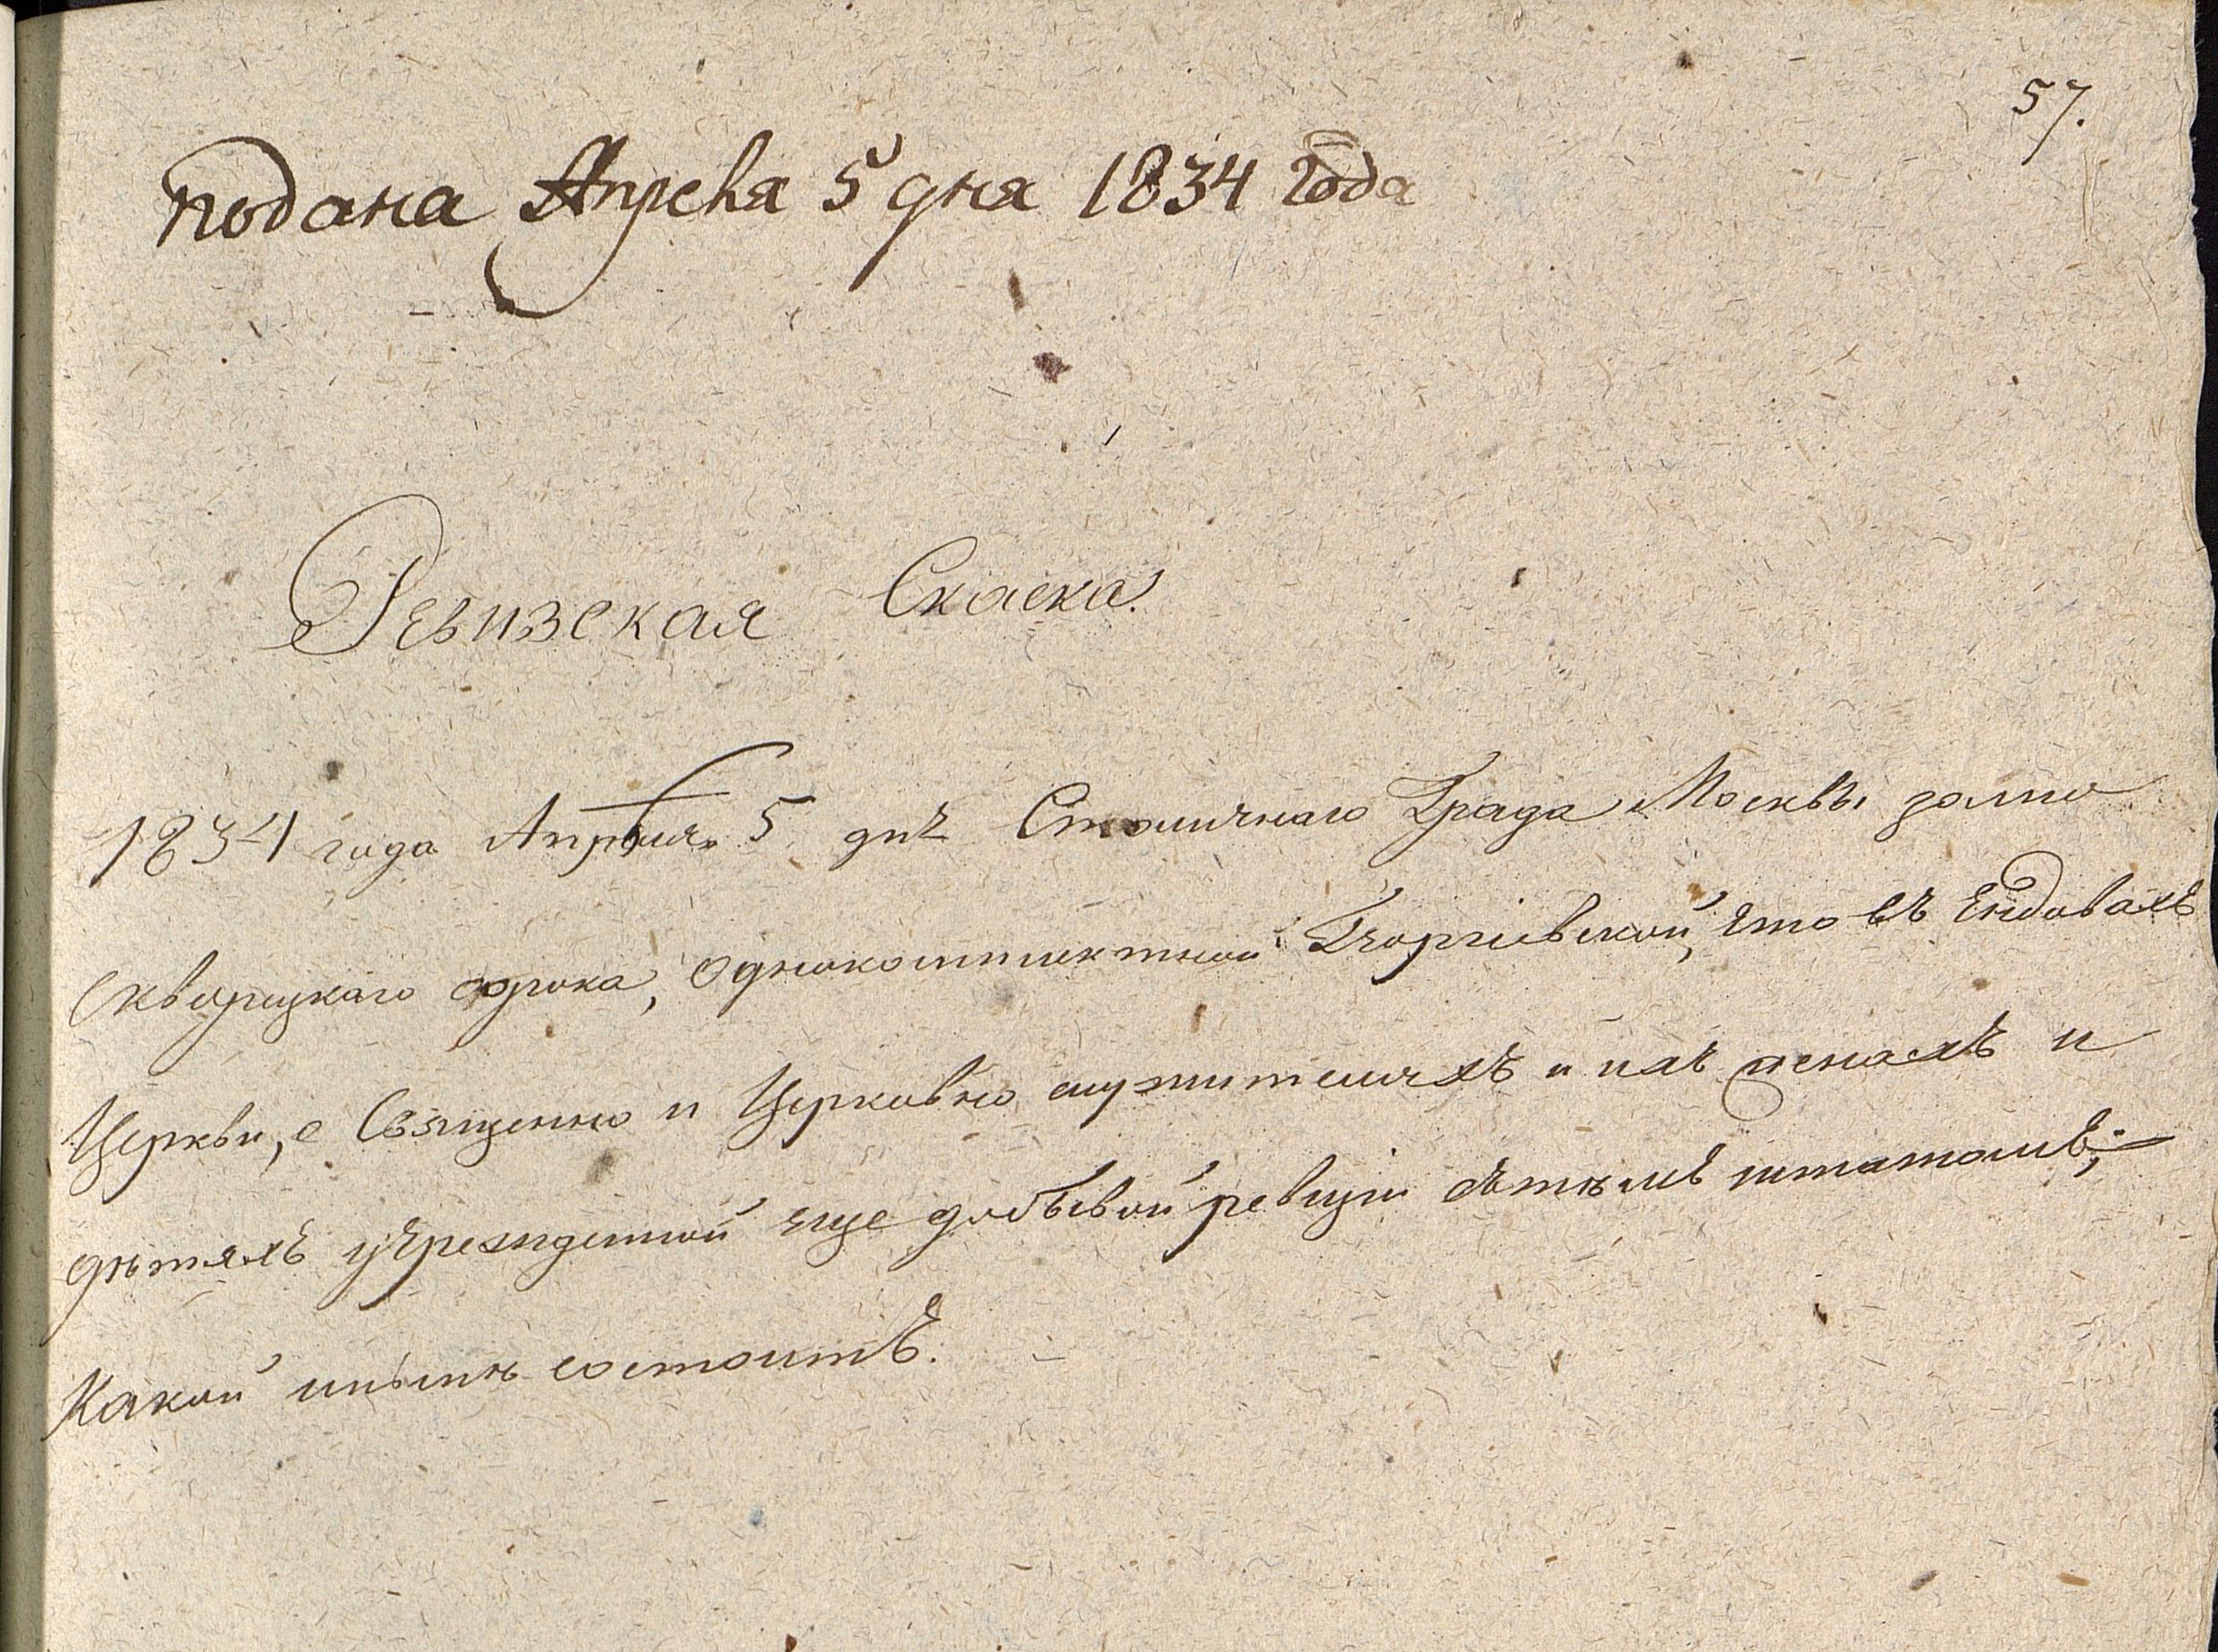 57.
подана Апреля 5 дня 1834 года
Ревизская Скаска.
1834 года Апреля 5 дня Столичнаго Града Москвы замо
скворецкаго сорока, однокомплектной Георгіевской, что въ Ендовахъ
Церкви, о Священно и Церковно служителяхъ и ихъ женахъ и
дѣтяхъ учрежденной еще до бывой ревизіи штатомъ;
Какой нынѣ состоитъ.